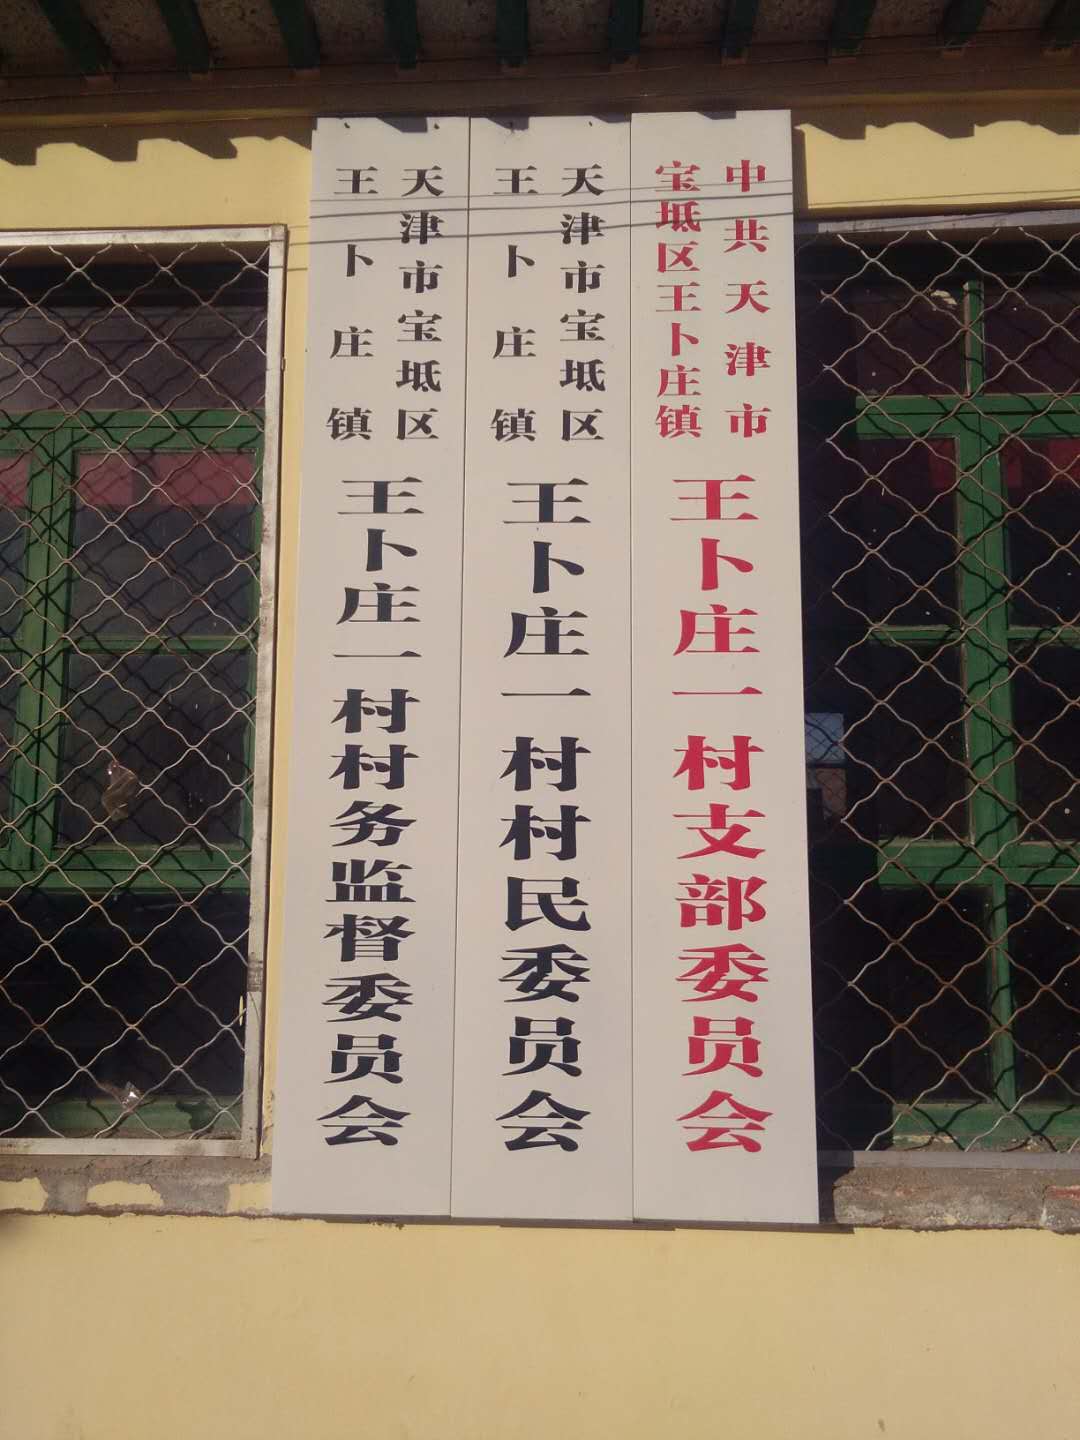 中共天津市
宝坻区王卜庄镇
王卜庄一村支部委员会
天津市宝坻区
王卜庄镇
王卜庄一村村民委员会
天津市宝坻区
王卜庄镇
王卜庄一村村务监督委员会